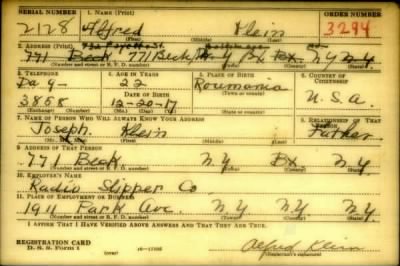 SERIAL NUMBER 1. NAME (Print) ORDER NUMBER
2128 Alfred Klein 3294
(First) (Middle) (Last)
2. ADDRESS (Print)
771 Beck 771 Beck St. Bx Bx. N.Y. N.Y.
(Number and street or R. F. D. number) (Town) (County) (State)
3. TELEPHONE 4. AGE IN YEARS 5. PLACE OF BIRTH 6. COUNTRY OF CITIZENSHIP
Da 9- 22 Roumania
DATE OF BIRTH (Town or county)
3858 12-20-17 U.S.A.
(Exchange) (Number) (Mo.) (Day) (Yr.) (State or country)
7. NAME OF PERSON WHO WILL ALWAYS KNOW YOUR ADDRESS 8. RELATIONSHIP OF THAT PERSON
Joseph Klein Father
(First) (Middle) (Last)
9. ADDRESS OF THAT PERSON
771 Beck N.Y. Bx. N.Y.
(Number and street or R. F. D. number) (Town) (County) (State)
10. EMPLOYER'S NAME
Radio Slipper Co.
11. PLACE OF EMPLOYMENT OR BUSINESS
1911 Park Ave. N.Y. N.Y. N.Y.
(Number and street or R. F. D. number) (Town) (County) (State)
I AFFIRM THAT I HAVE VERIFIED ABOVE ANSWERS AND THAT THEY ARE TRUE.
REGISTRATION CARD
D. S. S. Form 1 Alfred Klein
(Registrant's signature)